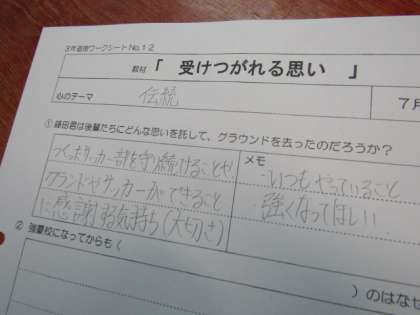 3年道徳ワークシートNo.12
教材「 受けつがれる思い 」
心のテーマ 伝統
7月
① 藤田君は後輩たちにどんな思いを託して、グラウンドを去ったのだろうか?
つくったサッカー部を守り続けることや
グランドやサッカーができること
に感謝する気持ち(大切さ)
メモ
・いつもやっていること
・強くなってほしい
② 強豪校になってからも(
)のはなぜ